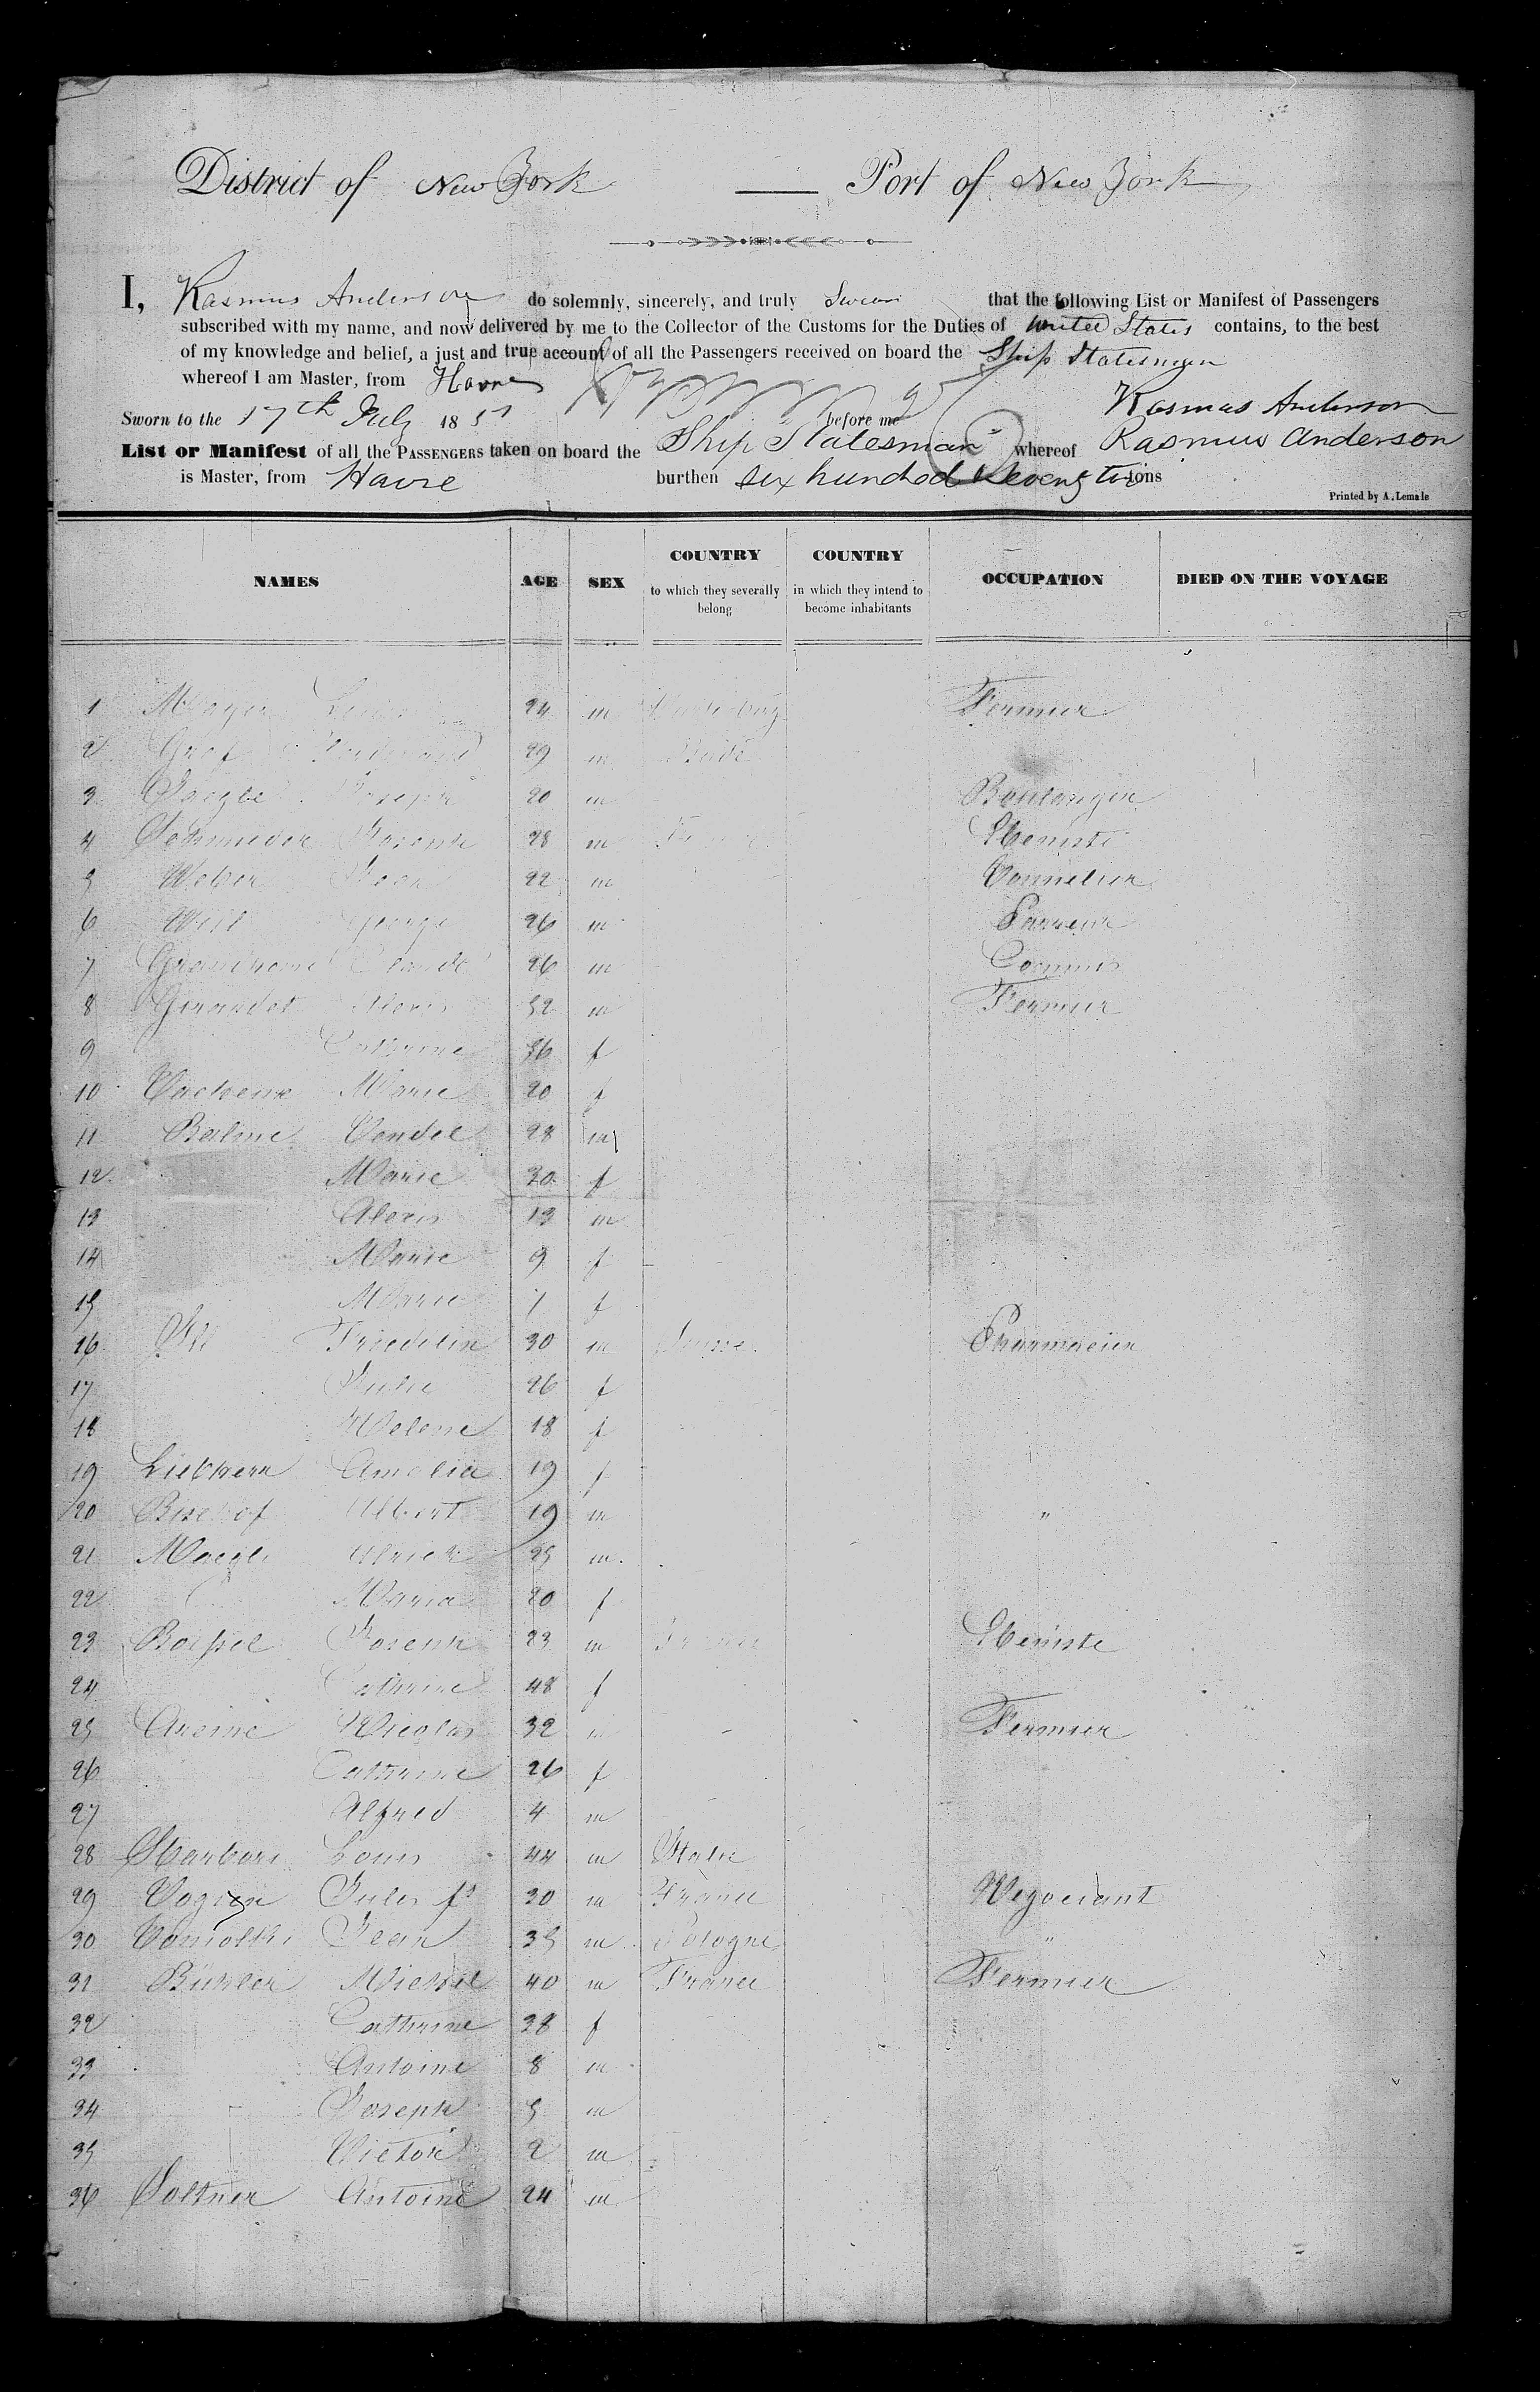 District of New York — Port of New York
I, Rasmus Anderson do solemnly, sincerely, and truly Swear that the following List or Manifest of Passengers
subscribed with my name, and now delivered by me to the Collector of the Customs for the Duties of United States contains, to the best
of my knowledge and belief, a just and true account of all the Passengers received on board the Ship Statesman
whereof I am Master, from Havre
Rasmus Anderson
Sworn to the 17th July 185 before me
List or Manifest of all the PASSENGERS taken on board the Ship "Statesman" whereof Rasmus Anderson
is Master, from Havre burthen six hundred seventy two tons
Printed by A. Lemale
NAMES AGE SEX COUNTRY to which they severally belong COUNTRY in which they intend to become inhabitants OCCUPATION DIED ON THE VOYAGE
1 Mayer 24 m Fermier
2 Graf 29 m Bade
3 Joseph 20 m Boulanger
4 Schnieder Joseph 28 m Ebeniste
5 Weber Jean 22 m Tonnelier
6 George 26 m
7 Claude 26 m Commis
8 Alexis 32 m Fermier
9 Catherine 36 f
10 Marie 20 f
11 28 m
12 Marie 30 f
13 Alexis 13 m
14 Marie 9 f
15 Marie 1 f
16 Friedelin 30 m Suisse Pharmacien
17 Julie 26 f
18 Helene 18 f
19 Amelia 19 f
20 Bischof Albert 19 m "
21 Maegli Ulrich 25 m
22 Maria 20 f
23 Joseph 23 m France Ebeniste
24 Cathrine 48 f
25 Nicolas 32 m Fermier
26 Catherine 26 f
27 Alfred 4 m
28 Louis 44 m Italie
29 Jules fs 30 m France Negociant
30 Jean 35 m Pologne "
31 Bühler Michel 40 m France Fermier
32 Catherine 38 f
33 Antoine 8 m
34 Joseph 5 m
35 Victor 2 m
36 Soltner Antoine 24 m